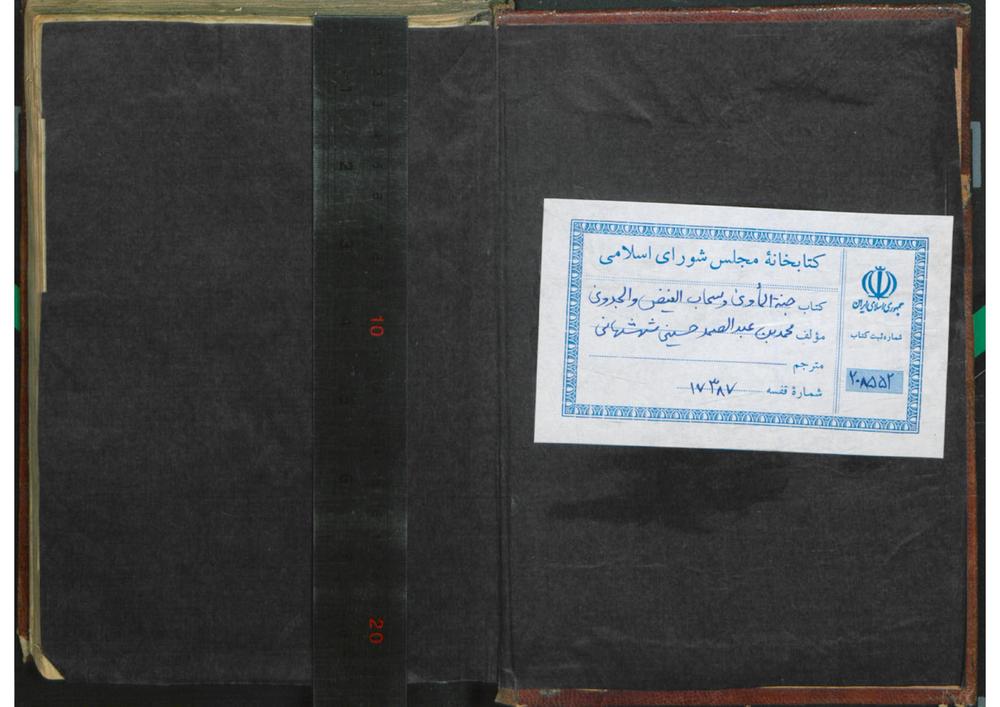 کتابخانهٔ مجلس شورای اسلامی
کتاب جنة المأوی وسحاب الفیض والجدوی
مؤلف محمد بن عبدالصمد حسینی شهشهانی
مترجم
شمارهٔ قفسه ۱۷۳۸۷
جمهوری اسلامی ایران
شماره ثبت کتاب
۲۰۸۵۵۲
10
20